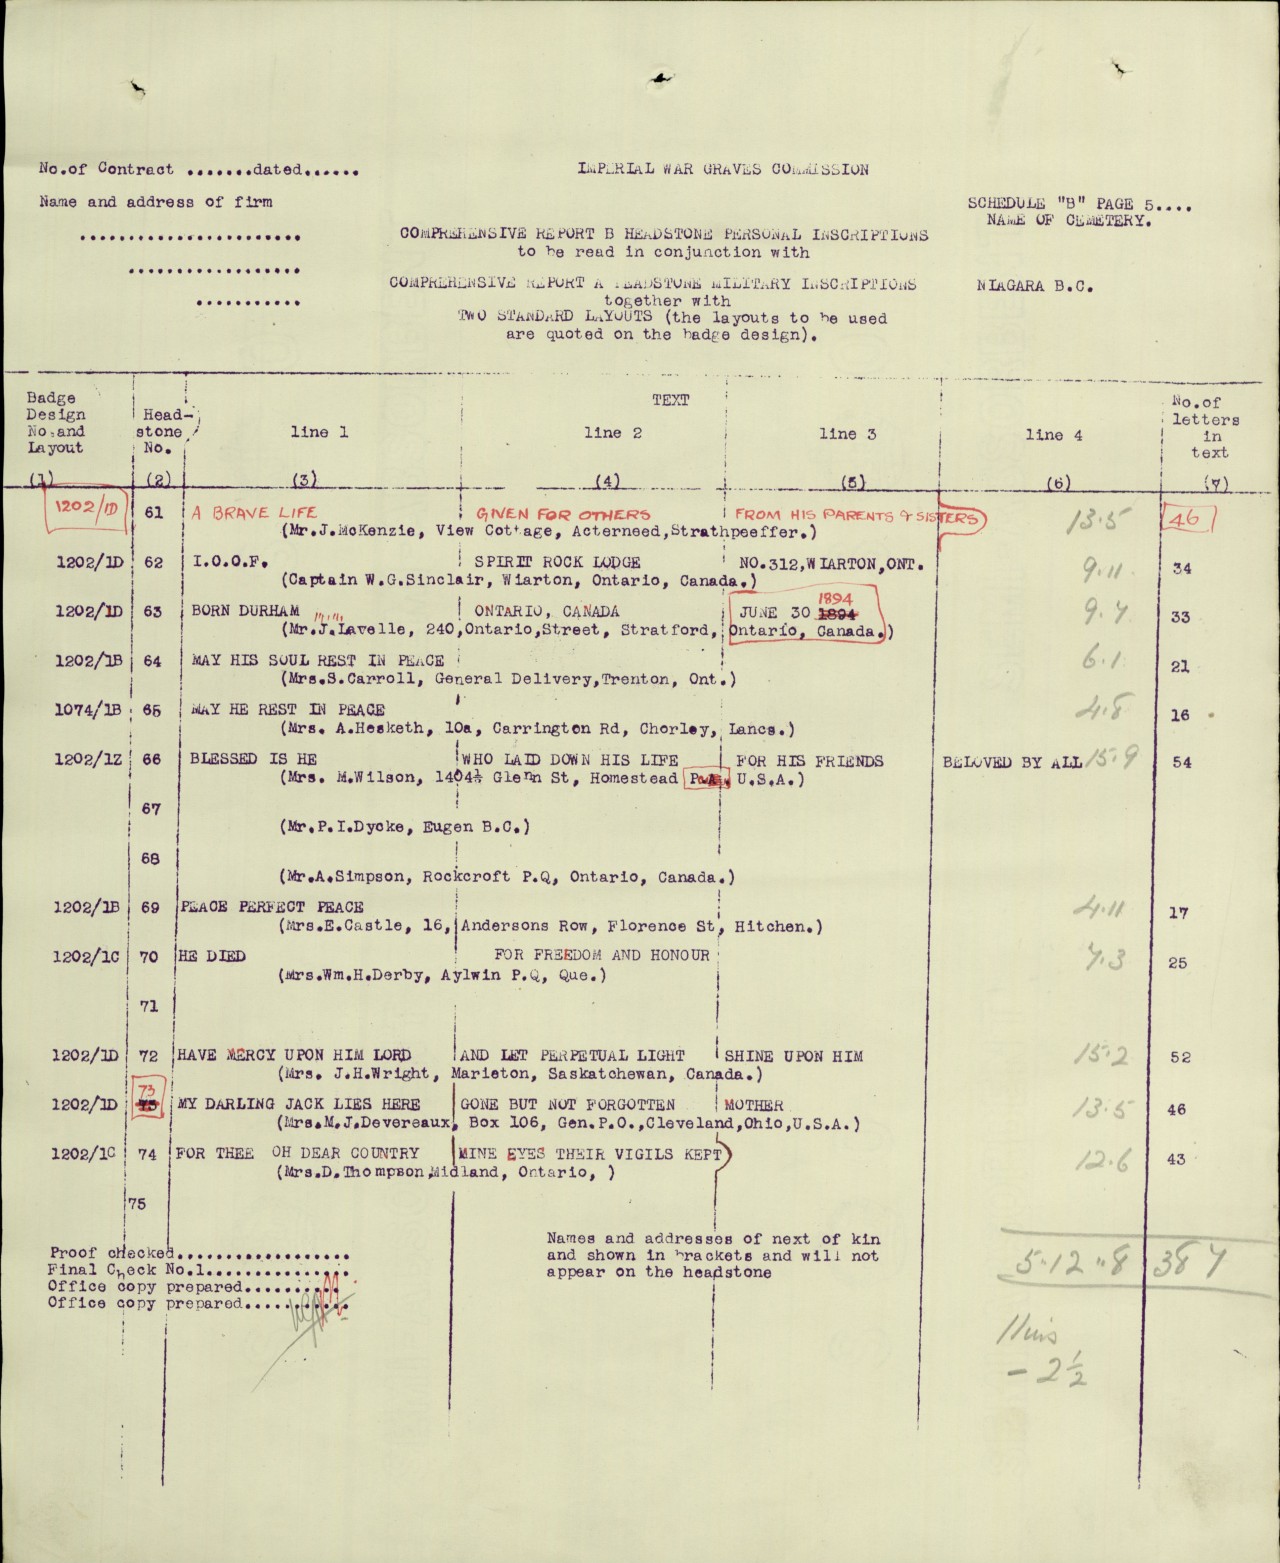 No.of Contract .......dated......
IMPERIAL WAR GRAVES COMMISSION
Name and address of firm
SCHEDULE "B" PAGE 5....
NAME OF CEMETERY.
COMPREHENSIVE REPORT B HEADSTONE PERSONAL INSCRIPTIONS
to be read in conjunction with
COMPREHENSIVE REPORT A HEADSTONE MILITARY INSCRIPTIONS
NIAGARA B.C.
together with
TWO STANDARD LAYOUTS (the layouts to be used
are quoted on the badge design).
Badge Design No.and Layout
Head-stone No.
TEXT
line 1
line 2
line 3
line 4
No.of letters in text
(1) (2) (3) (4) (5) (6) (7)
1202/1D 61 A BRAVE LIFE GIVEN FOR OTHERS FROM HIS PARENTS & SISTERS 13.5 46
(Mr.J.McKenzie, View Cottage, Acterneed,Strathpeeffer.)
1202/1D 62 I.O.O.F. SPIRIT ROCK LODGE NO.312,WIARTON,ONT. 9.11 34
(Captain W.G.Sinclair, Wiarton, Ontario, Canada.)
1894
1202/1D 63 BORN DURHAM ONTARIO, CANADA JUNE 30 1894 9.7 33
(Mr.J.Lavelle, 240,Ontario,Street, Stratford, Ontario, Canada.)
1202/1B 64 MAY HIS SOUL REST IN PEACE 6.1 21
(Mrs.S.Carroll, General Delivery,Trenton, Ont.)
1074/1B 65 MAY HE REST IN PEACE 4.8 16
(Mrs. A.Hesketh, 10a, Carrington Rd, Chorley, Lancs.)
1202/1Z 66 BLESSED IS HE WHO LAID DOWN HIS LIFE FOR HIS FRIENDS BELOVED BY ALL 15.9 54
(Mrs. M.Wilson, 1404½ Glenn St, Homestead P.A. U.S.A.)
67
(Mr.P.I.Dycke, Eugen B.C.)
68
(Mr.A.Simpson, Rockcroft P.Q, Ontario, Canada.)
1202/1B 69 PEACE PERFECT PEACE 4.11 17
(Mrs.E.Castle, 16, Andersons Row, Florence St, Hitchen.)
1202/1C 70 HE DIED FOR FREEDOM AND HONOUR 7.3 25
(Mrs.Wm.H.Derby, Aylwin P.Q, Que.)
71
1202/1D 72 HAVE MERCY UPON HIM LORD AND LET PERPETUAL LIGHT SHINE UPON HIM 15.2 52
(Mrs. J.H.Wright, Marieton, Saskatchewan, Canada.)
73
1202/1D MY DARLING JACK LIES HERE GONE BUT NOT FORGOTTEN MOTHER 13.5 46
(Mrs.M.J.Devereaux, Box 106, Gen.P.O.,Cleveland,Ohio,U.S.A.)
1202/1C 74 FOR THEE OH DEAR COUNTRY MINE EYES THEIR VIGILS KEPT 12.6 43
(Mrs.D.Thompson,Midland, Ontario, )
75
Names and addresses of next of kin
and shown in brackets and will not
appear on the headstone
Proof checked..................
Final Check No.1...............
Office copy prepared...........
Office copy prepared...........
5.12.8 387
- 2½